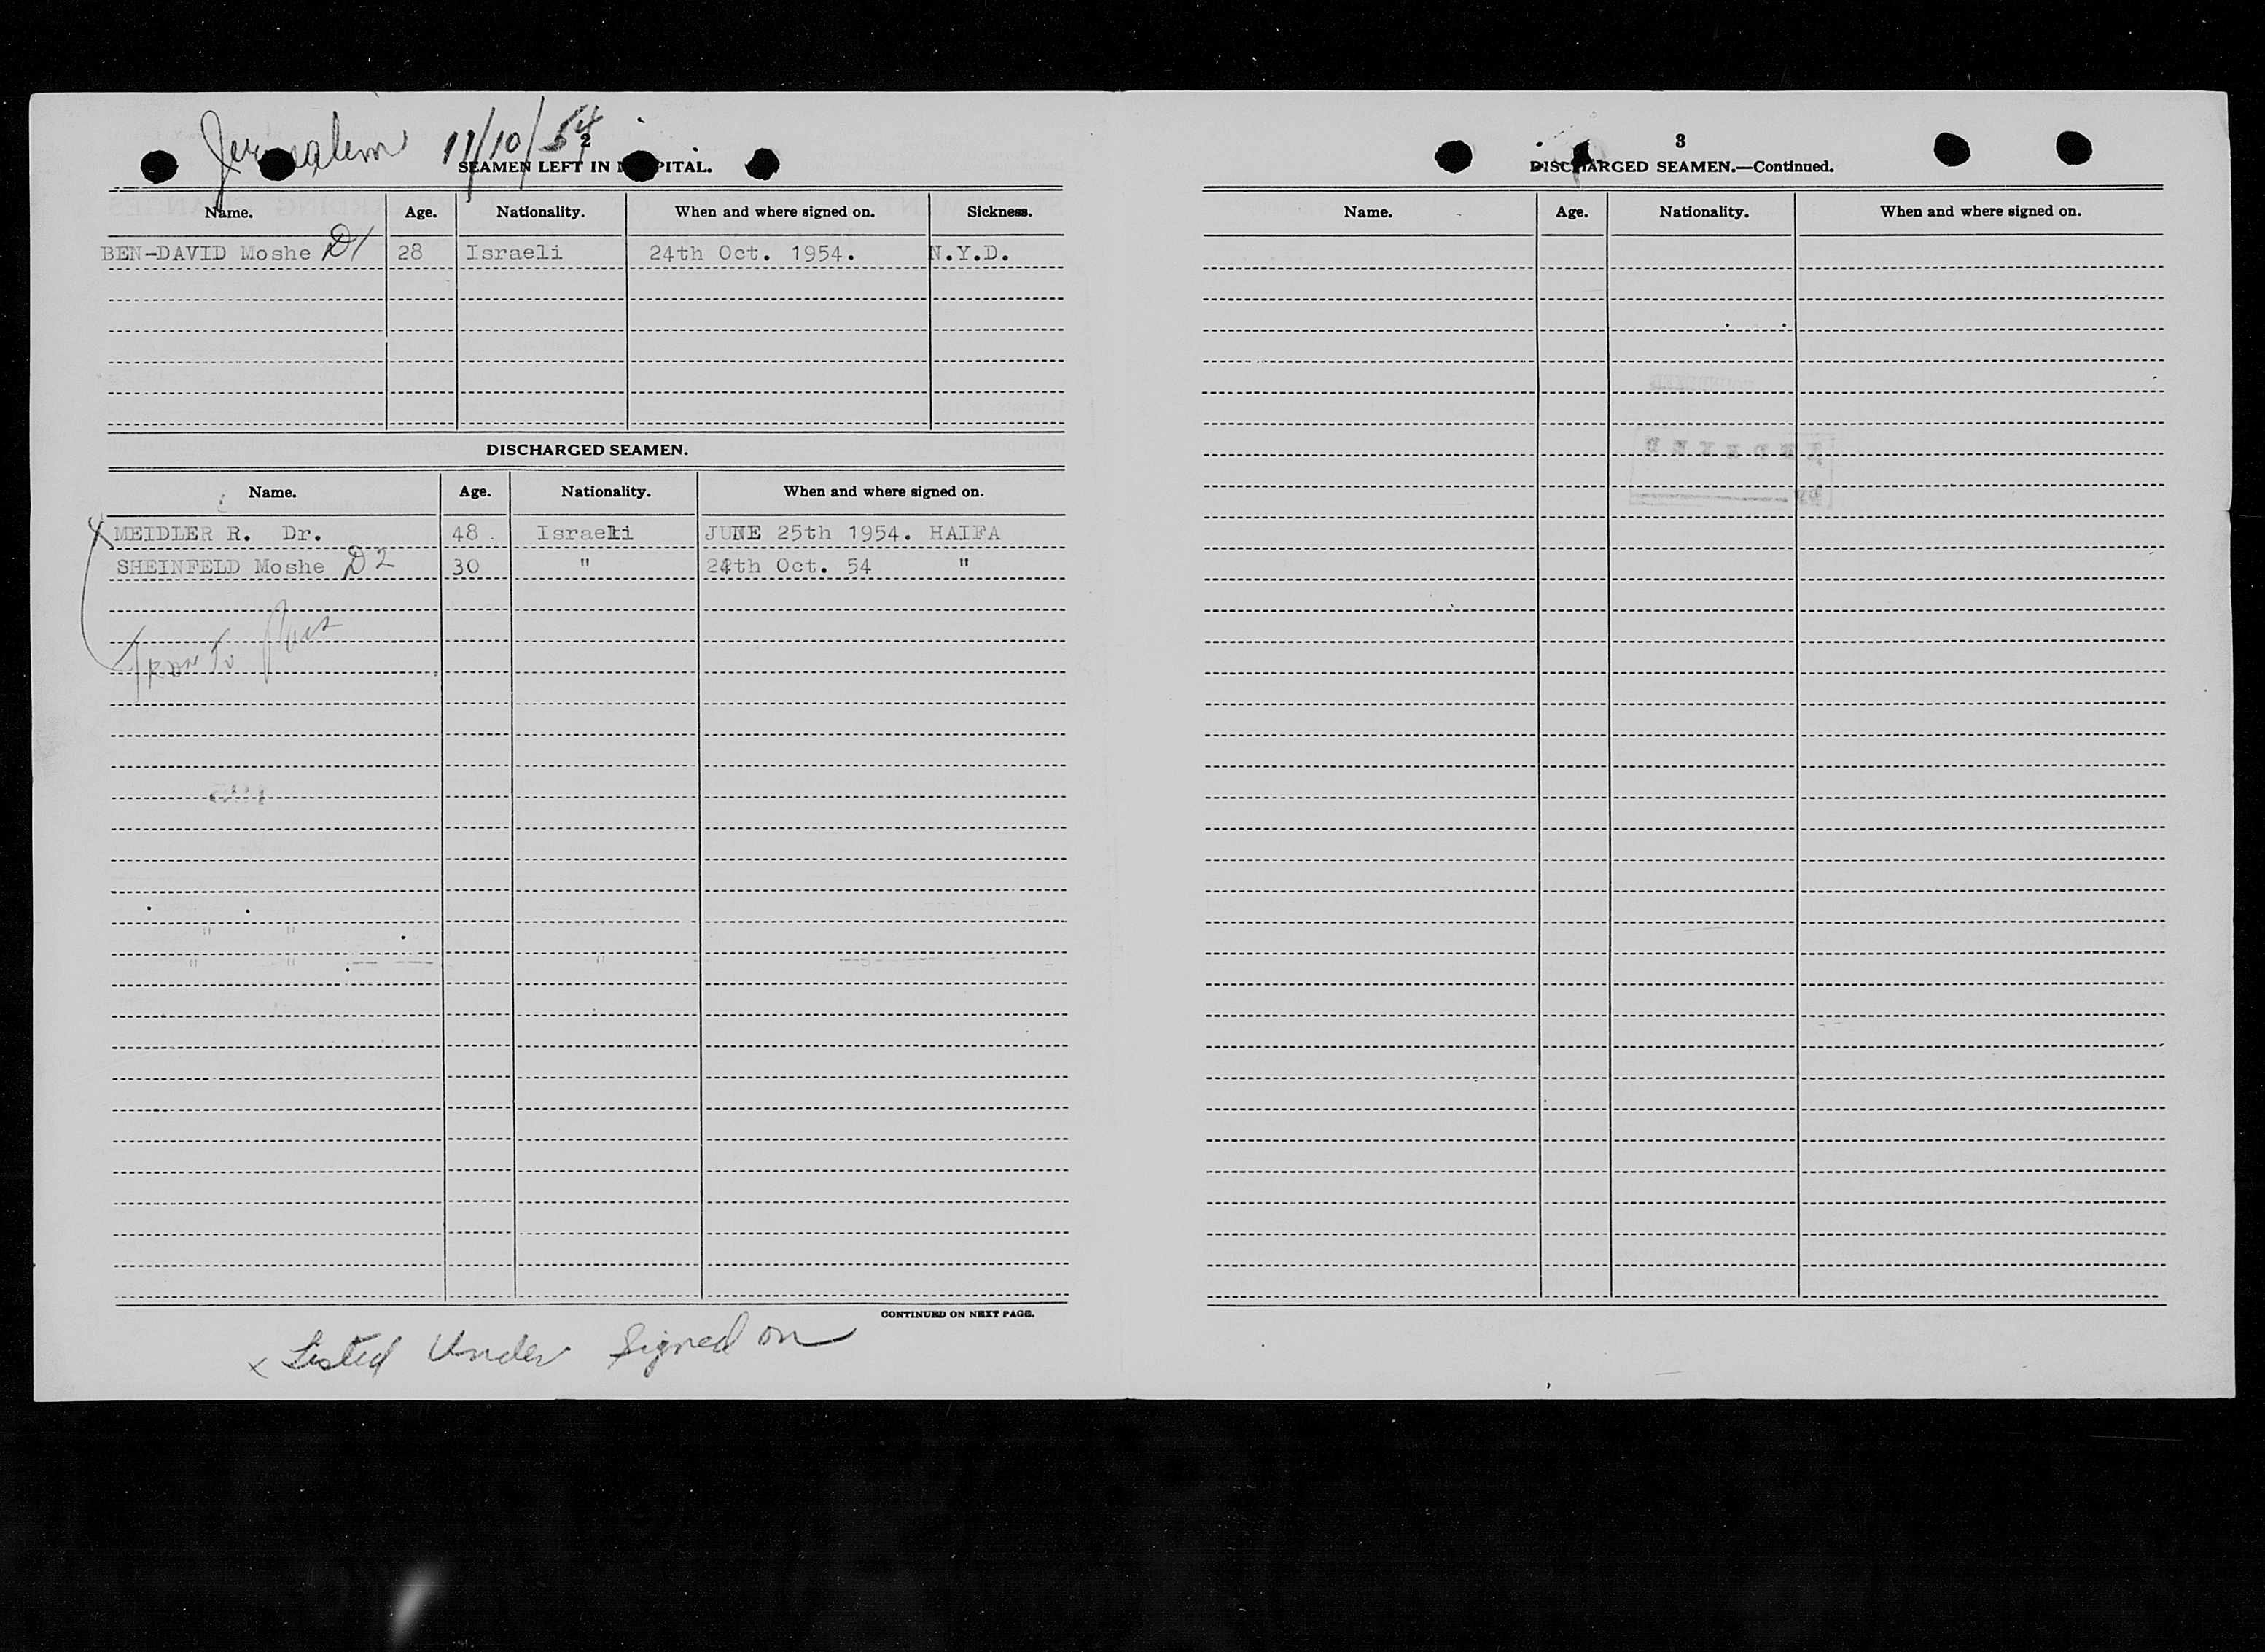 Jerusalem 11/10/54
2
SEAMEN LEFT IN HOSPITAL.
Name. Age. Nationality. When and where signed on. Sickness.
BEN-DAVID Moshe D1 28 Israeli 24th Oct. 1954. N.Y.D.
DISCHARGED SEAMEN.
Name. Age. Nationality. When and where signed on.
x MEIDLER R. Dr. 48. Israeli JUNE 25th 1954. HAIFA
SHEINFELD Moshe D2 30 " 24th Oct. 54 "
CONTINUED ON NEXT PAGE.
x Listed Under Signed on
3
DISCHARGED SEAMEN.—Continued.
Name. Age. Nationality. When and where signed on.